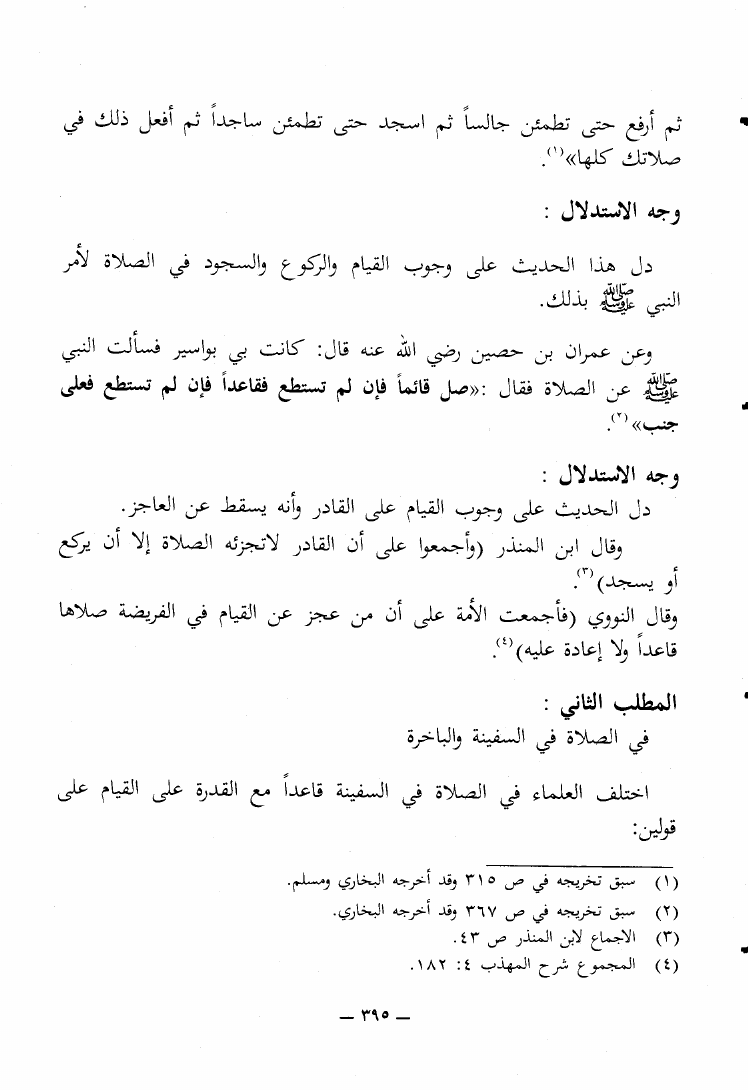 ثم أرفع حتى تطمئن جالساً ثم اسجد حتى تطمئن ساجداً ثم أفعل ذلك في
صلاتك كلها»(١).
وجه الاستدلال :
دل هذا الحديث على وجوب القيام والركوع والسجود في الصلاة لأمر
النبي ﷺ بذلك.
وعن عمران بن حصين رضي الله عنه قال: كانت بي بواسير فسألت النبي
ﷺ عن الصلاة فقال :«صل قائماً فإن لم تستطع فقاعداً فإن لم تستطع فعلى
جنب»(٢).
وجه الاستدلال :
دل الحديث على وجوب القيام على القادر وأنه يسقط عن العاجز.
وقال ابن المنذر (وأجمعوا على أن القادر لاتجزئه الصلاة إلا أن يركع
أو يسجد)(٣).
وقال النووي (فأجمعت الأمة على أن من عجز عن القيام في الفريضة صلاها
قاعداً ولا إعادة عليه)(٤).
المطلب الثاني :
في الصلاة في السفينة والباخرة
اختلف العلماء في الصلاة في السفينة قاعداً مع القدرة على القيام على
قولين:
(١) سبق تخريجه في ص ٣١٥ وقد أخرجه البخاري ومسلم.
(٢) سبق تخريجه في ص ٣٦٧ وقد أخرجه البخاري.
(٣) الاجماع لابن المنذر ص ٤٣.
(٤) المجموع شرح المهذب ٤: ١٨٢.
— ٣٩٥ —